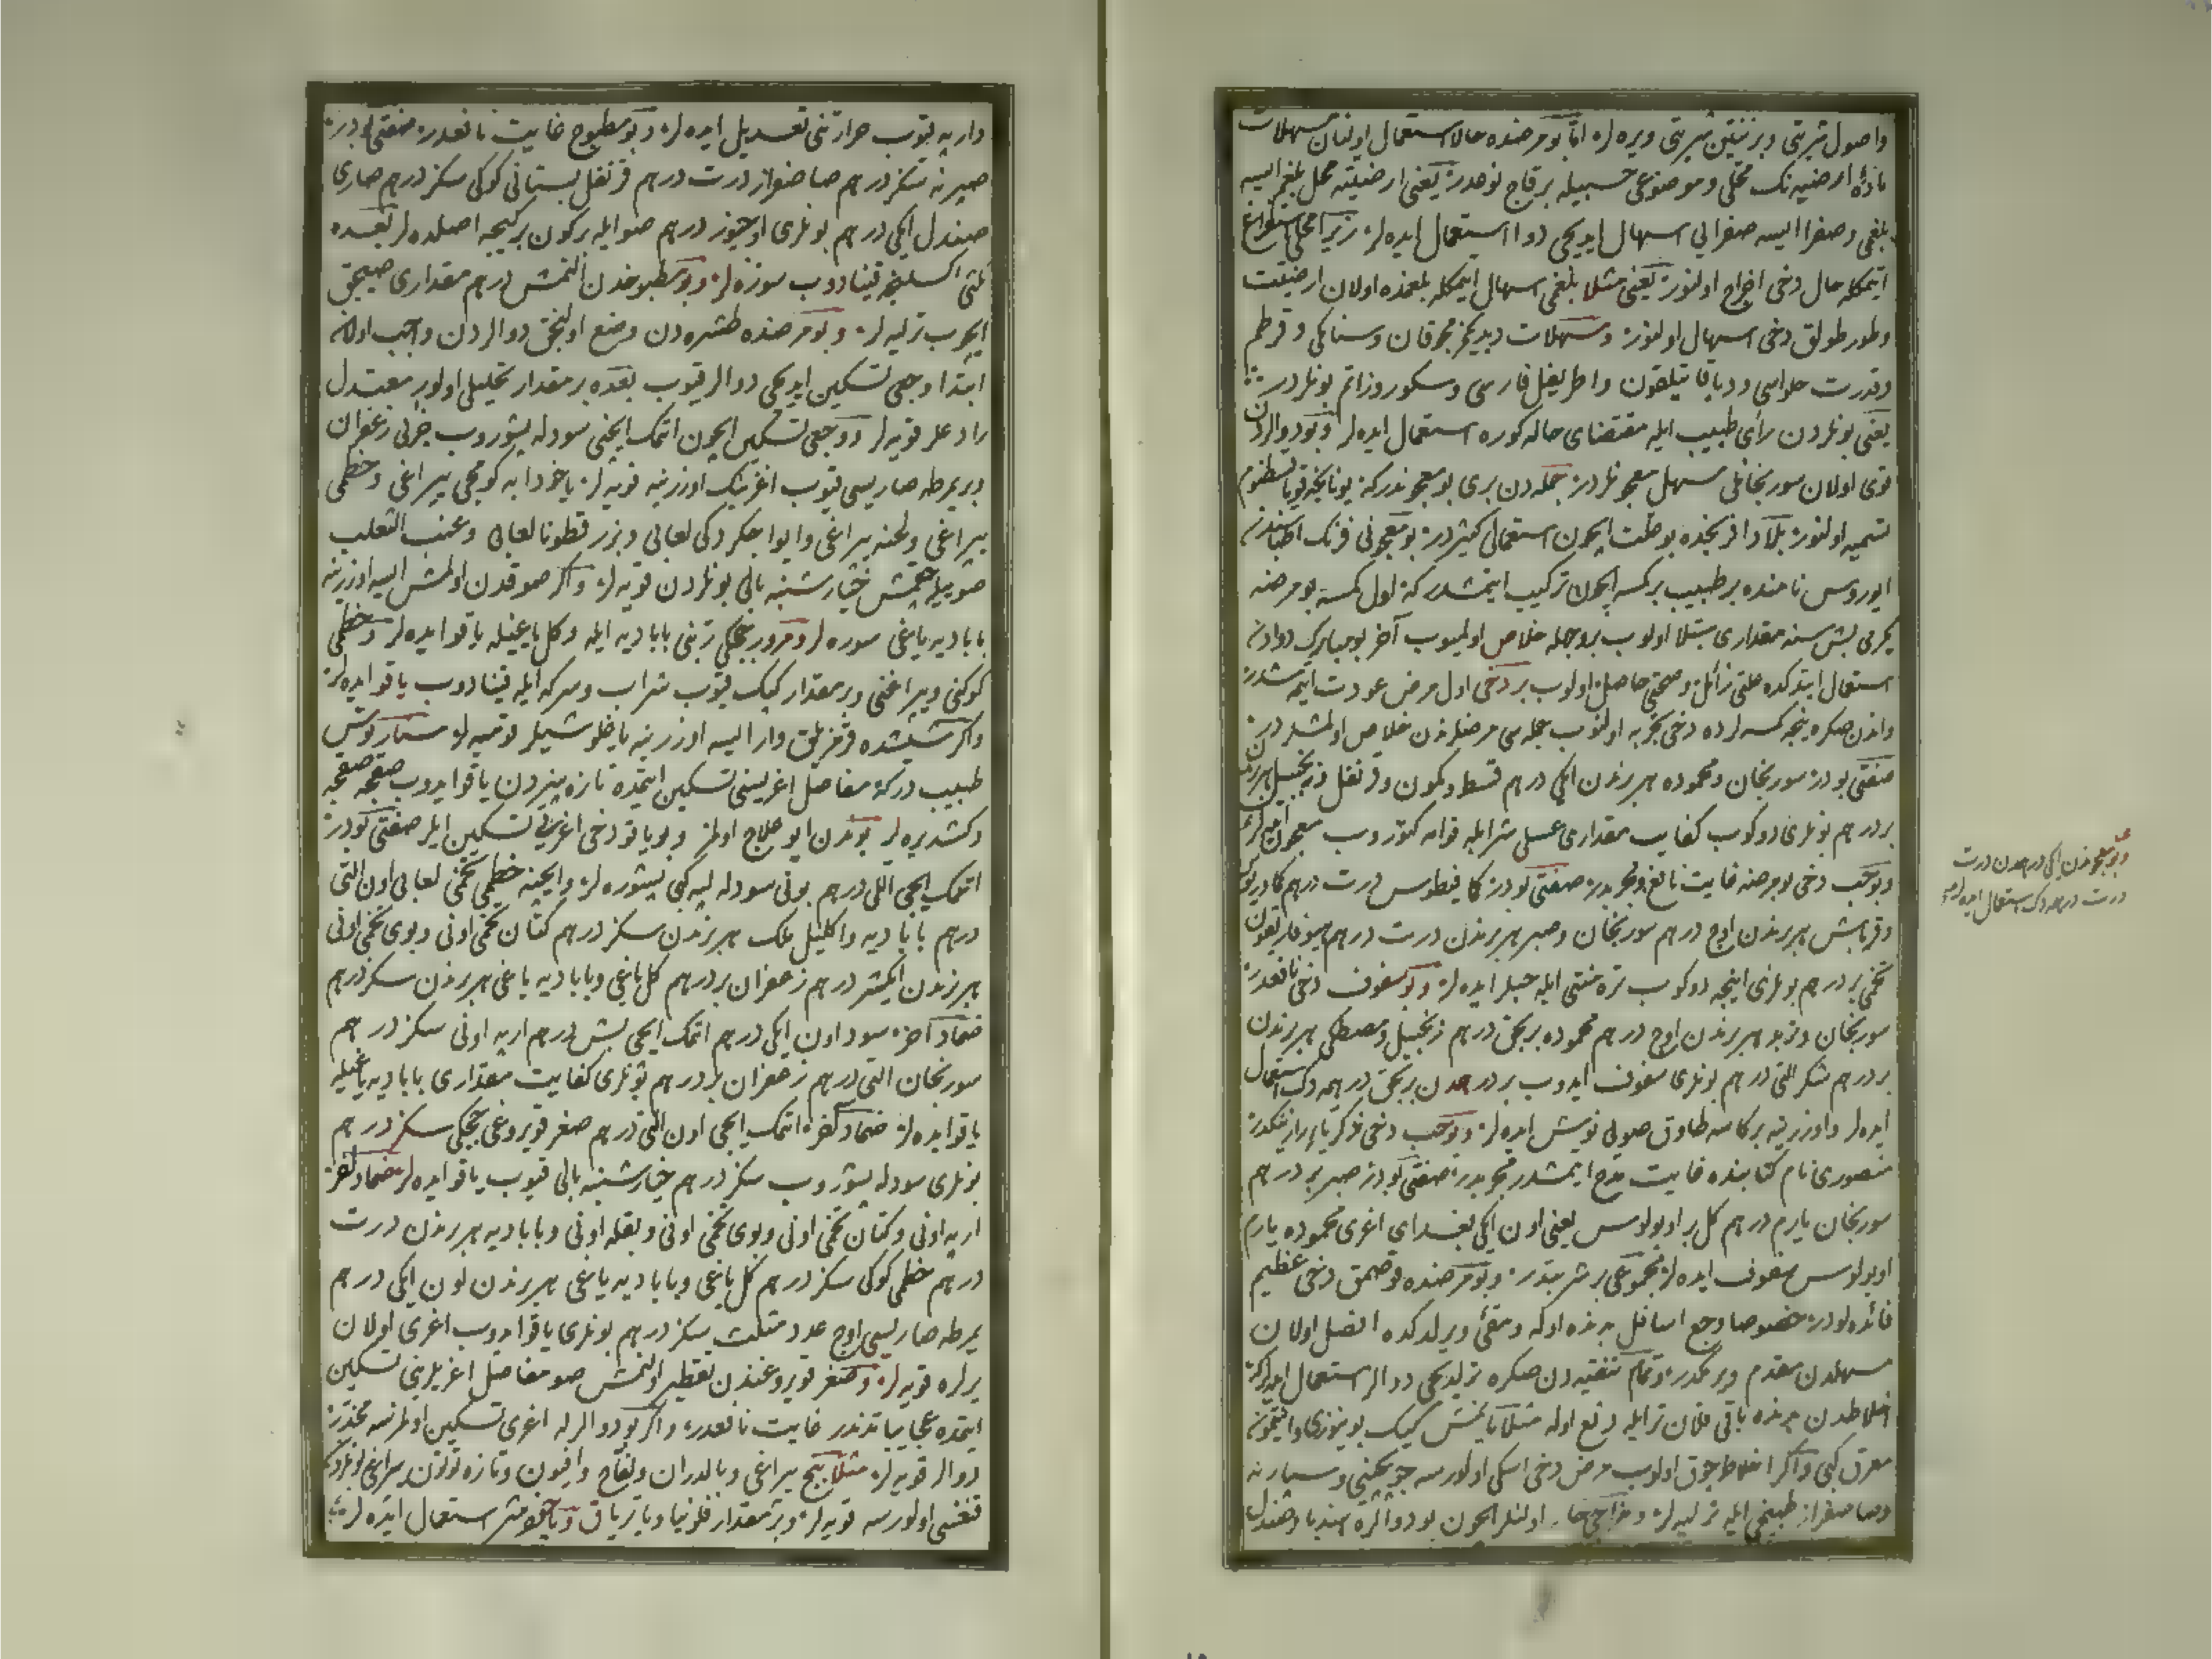 واصول شربتی و بزنتین شربتی ویره لر اما بو مرضده حالا استعمال اولنان مسهلات
ماده ارضیه نک محلی و موضوعی حسبیله بر قاج نوعدر یعنی ارضیته محل بلغم ایسه
بلغمی و صفرا ایسه صفرایی اسهال ایدیجی دوا استعمال ایده لر زیرا محلی استفراغ
ایتمکله حال دخی اخراج اولنور یعنی مثلا بلغمی اسهال ایتمکله بلغمده اولان ارضیت
وطورطولق دخی اسهال اولنور و مسهلات دیدیکمز محرقان و سنامکی و قرطم
وقدرت حلواسی و دیافاتیلقون و اطریفل فارسی و سکوروزاتم بونلردر
یعنی بونلردن رأی طبیب ایله مقتضای حاله کوره استعمال ایده لر و بو دوالردن
قوی اولان سورنجانلی مسهل معجونلردر جمله دن بری بو معجوندرکه یونانجه
تسمیه اولنور بلاد افرنجده بو علت ایچون استعمالی کثیردر بو معجونی فرنک اطباسندن
ایوروس نامنده بر طبیب بر کمسه ایچون ترکیب ایتمشدر که اول کمسه بو مرضه
یکرمی بش سنه مقداری مبتلا اولوب بر وجهله خلاص اولمیوب آخر بو مبارک دوادن
استعمال ایتدکده علتی زائل و صحتی حاصل اولوب بر دخی اول مرض عودت ایتمه مشدر
واندن صکره نیجه کمسه لرده دخی تجربه اولنوب جمله سی مرضلرندن خلاص اولمشلردر
صفتی بودر سورنجان و محموده هر برندن ایکی درهم قسط و کمون و قرنفل و زنجبیل هر برندن
بر درهم بونلری دوکوب کفایت مقداری عسلی شرابله قوامه کتوروب معجون ایده لر
و بو حب دخی بو مرضه غایت نافع و مجربدر صفتی بودر کمافیطوس درت درهم کمادریوس
وقرنابش هر برندن اوچ درهم سورنجان و صبر هر برندن درت درهم هیوفاریقون
تخمی بر درهم بونلری اینجه دوکوب تره منتی ایله حبلر ایده لر و بو سفوف دخی نافعدر
سورنجان و تربد هر برندن اوچ درهم محموده بر بحق درهم زنجبیل و مصطکی هر برندن
بر درهم شکر اللی درهم بونلری سفوف ایدوب بر درهمدن بر بحق درهمه دک استعمال
ایده لر و اوزرینه بر کاسه طاوق صویی نوش ایده لر و بو حب دخی زکریاء رازینکدر
منصوری نام کتابنده غایت مدح ایتمشدر مجربدر صفتی بودر صبر بر درهم
سورنجان یارم درهم کل بر اوبولوس یعنی اون ایکی بغدای اغری محموده یارم
اوبولوس سفوف ایده لر مجموعی بر شربتدر و بو مرضده قوصمق دخی عظیم
فائده لودر خصوصا وجع اسافل بدنده اوله و مقیء ویرلدکده افضل اولان
مسهلدن مقدم ویرمکدر و تمام تنقیه دن صکره ترلدیجی دوالر استعمال ایده لر که
اخلاطدن بدنده باقی قلان ترایله دفع اوله مثلا یانمش کیک بوینوزی و انتیمون
معرق کبی و اکر اخلاط چوق اولوب مرض دخی اسکی اولورسه چوبچینی و سپارنه
و صاصفراز طبیخی ایله ترلیه لر و مزاجی حار اولنلر ایچون بو دوالره هندبا و صندل
و بو معجوندن ایکی درهمدن درت
درت درهمه دک استعمال ایده لر
داریه قتوب حرارتنی تعدیل ایده لر و بو مطبوخ غایت نافعدر صفتی بودر
صپرنه سکز درهم صاصفراز درت درهم قرنفل بستانی کوکی سکز درهم صاری
صندل ایکی درهم بونلری اوچیوز درهم صو ایله بر کون بر کیجه اصلده لر بعده
ثلثی اکسلنجه قیناددوب سوزه لر و بو مطبوخدن التمش درهم مقداری صیجق
ایچوب ترلیه لر و بو مرضده طشره دن وضع اولنجق دوالردن واجب اولان
ابتدا وجعی تسکین ایدیجی دوالر قیوب بعده بر مقدار تحلیلی اولور معتدل
رادعلر قویه لر و وجعی تسکین ایچون اتمک ایچنی سودله پشوروب جزئی زعفران
و بر یمرطه صاریسی قتوب اغرینک اوزرینه قویه لر یاخود ابه کومجی یپراغی و خطمی
یپراغی و لحنه یپراغی و ایوا چکردکی لعابی و بزر قطونا لعابی و عنب الثعلب
صوییله چقمش خیارشنبه بالی بونلردن قویه لر و اکر صوقدن اولمش ایسه اوزرینه
بابادیه یاغی سوره لر و مرور چچکی زبتنی بابادیه ایله و کل یاغیله یاقو ایده لر و خطمی
کوکنی و یپراغنی و بر مقدار کپک قیوب شراب و سرکه ایله قینادوب یاقو ایده لر
و اکر شیشده قزمزیلق وار ایسه اوزرینه یاغلو شیلر قومیه لر سنارتوس
طبیب درکه مفاصل اغریسنی تسکین ایتمده تازه پنیردن یاقو ایدوب صقجه صقجه
دکشدیره لر بوندن ایو علاج اولمز و بو یاقو دخی اغرییی تسکین ایلر صفتی بودر
اتمک ایچی اللی درهم بونی سودله لپه کبی پشوره لر و ایچنه خطمی تخمی لعابی اون التی
درهم بابادیه و اکلیل ملک هر برندن سکز درهم کتان تخمی اونی و بوی تخمی اونی
هر برندن ایکیشر درهم زعفران بر درهم کل یاغی و بابادیه یاغی هر برندن سکز درهم
ضماد آخر سود اون ایکی درهم اتمک ایچی بش درهم ارپه اونی سکز درهم
سورنجان التی درهم زعفران بر درهم بونلری کفایت مقداری بابادیه یاغیله
یاقو ایده لر ضماد آخر اتمک ایچی اون التی درهم صغر قویروغی چچکی سکز درهم
بونلری سودله پشوروب سکز درهم خیارشنبه بالی قیوب یاقو ایده لر ضماد آخر
ارپه اونی و کتان تخمی اونی و بوی تخمی اونی و بقله اونی و بابادیه هر برندن درت
درهم خطمی کوکی سکز درهم کل یاغی و بابادیه یاغی هر برندن اون ایکی درهم
یمرطه صاریسی اوچ عدد مثلث سکز درهم بونلری یاقو ایدوب اغری اولان
یرلره قویه لر و صغر قویروغندن تقطیر اولنمش صو مفاصل اغریلرینی تسکین
ایتمده عجایباتدندر غایت نافعدر و اکر بو دوالرله اغری تسکین اولمزسه مخدر
دوالر قویه لر مثلا بنج یپراغی و بالدران و تفاح و افیون و تازه توتون یپراغی بونلردن
قنغیسی اولورسه قویه لر و بر مقدار فلونیا و یا تریاق و یا استعمال ایده لر